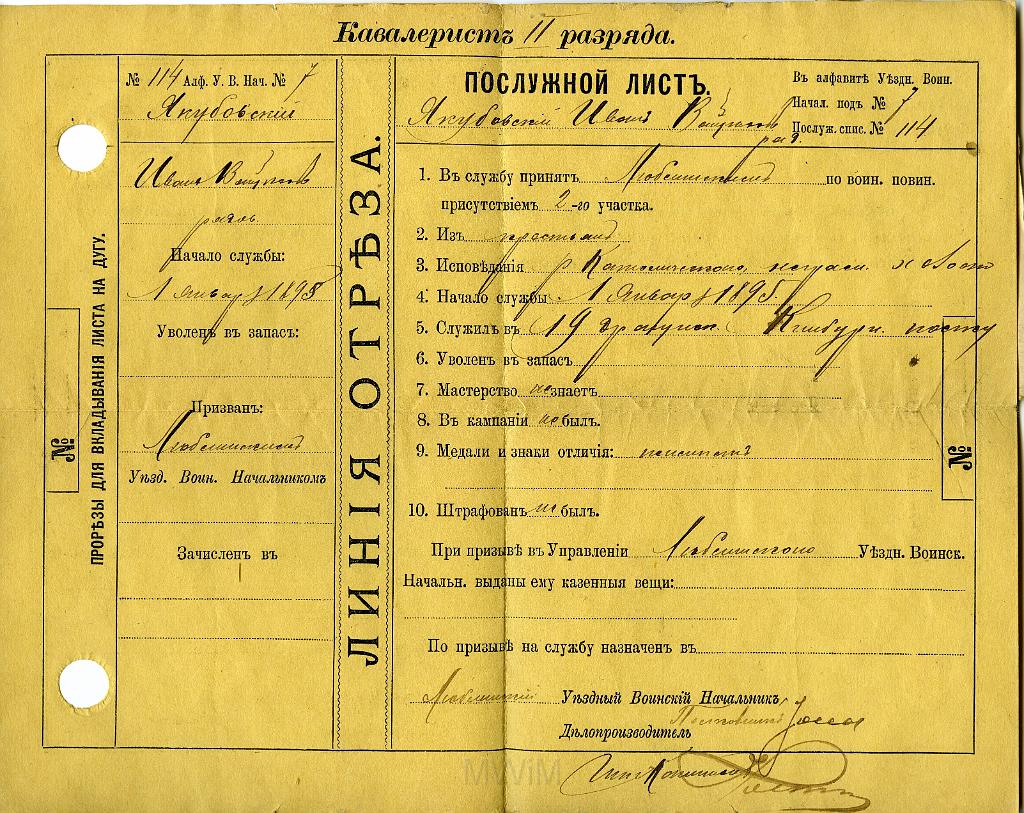 Кавалеристъ II разряда.
№ 114 Алф. У. В. Нач. № 7
Якубовскій
Иванъ
Начало службы:
1 Января 1895
Уволенъ въ запасъ:
Призванъ:
Уѣзд. Воин. Начальникомъ
Зачисленъ въ
ПРОРѢЗЫ ДЛЯ ВКЛАДЫВАНІЯ ЛИСТА НА ДУГУ.
№
ЛИНІЯ ОТРѢЗА.
ПОСЛУЖНОЙ ЛИСТЪ.
Въ алфавитѣ Уѣздн. Воин.
Начал. подъ № 7
Послуж. спис. № 114
Якубовскій Иванъ
1. Въ службу принятъ по воин. повин.
присутствіемъ 2-го участка.
2. Изъ крестьянъ
3. Исповѣданія р Католическаго,
4. Начало службы 1 Января 1895
5. Служилъ въ 19 драгунск. Кинбурн. полку
6. Уволенъ въ запасъ
7. Мастерство не знаетъ
8. Въ кампаніи не былъ.
9. Медали и знаки отличія:
10. Штрафованъ не былъ.
При призывѣ въ Управленіи Уѣздн. Воинск.
Начальн. выданы ему казенныя вещи:
По призывѣ на службу назначенъ въ
Уѣздный Воинскій Начальникъ
Полковникъ
Дѣлопроизводитель
№
MWiM